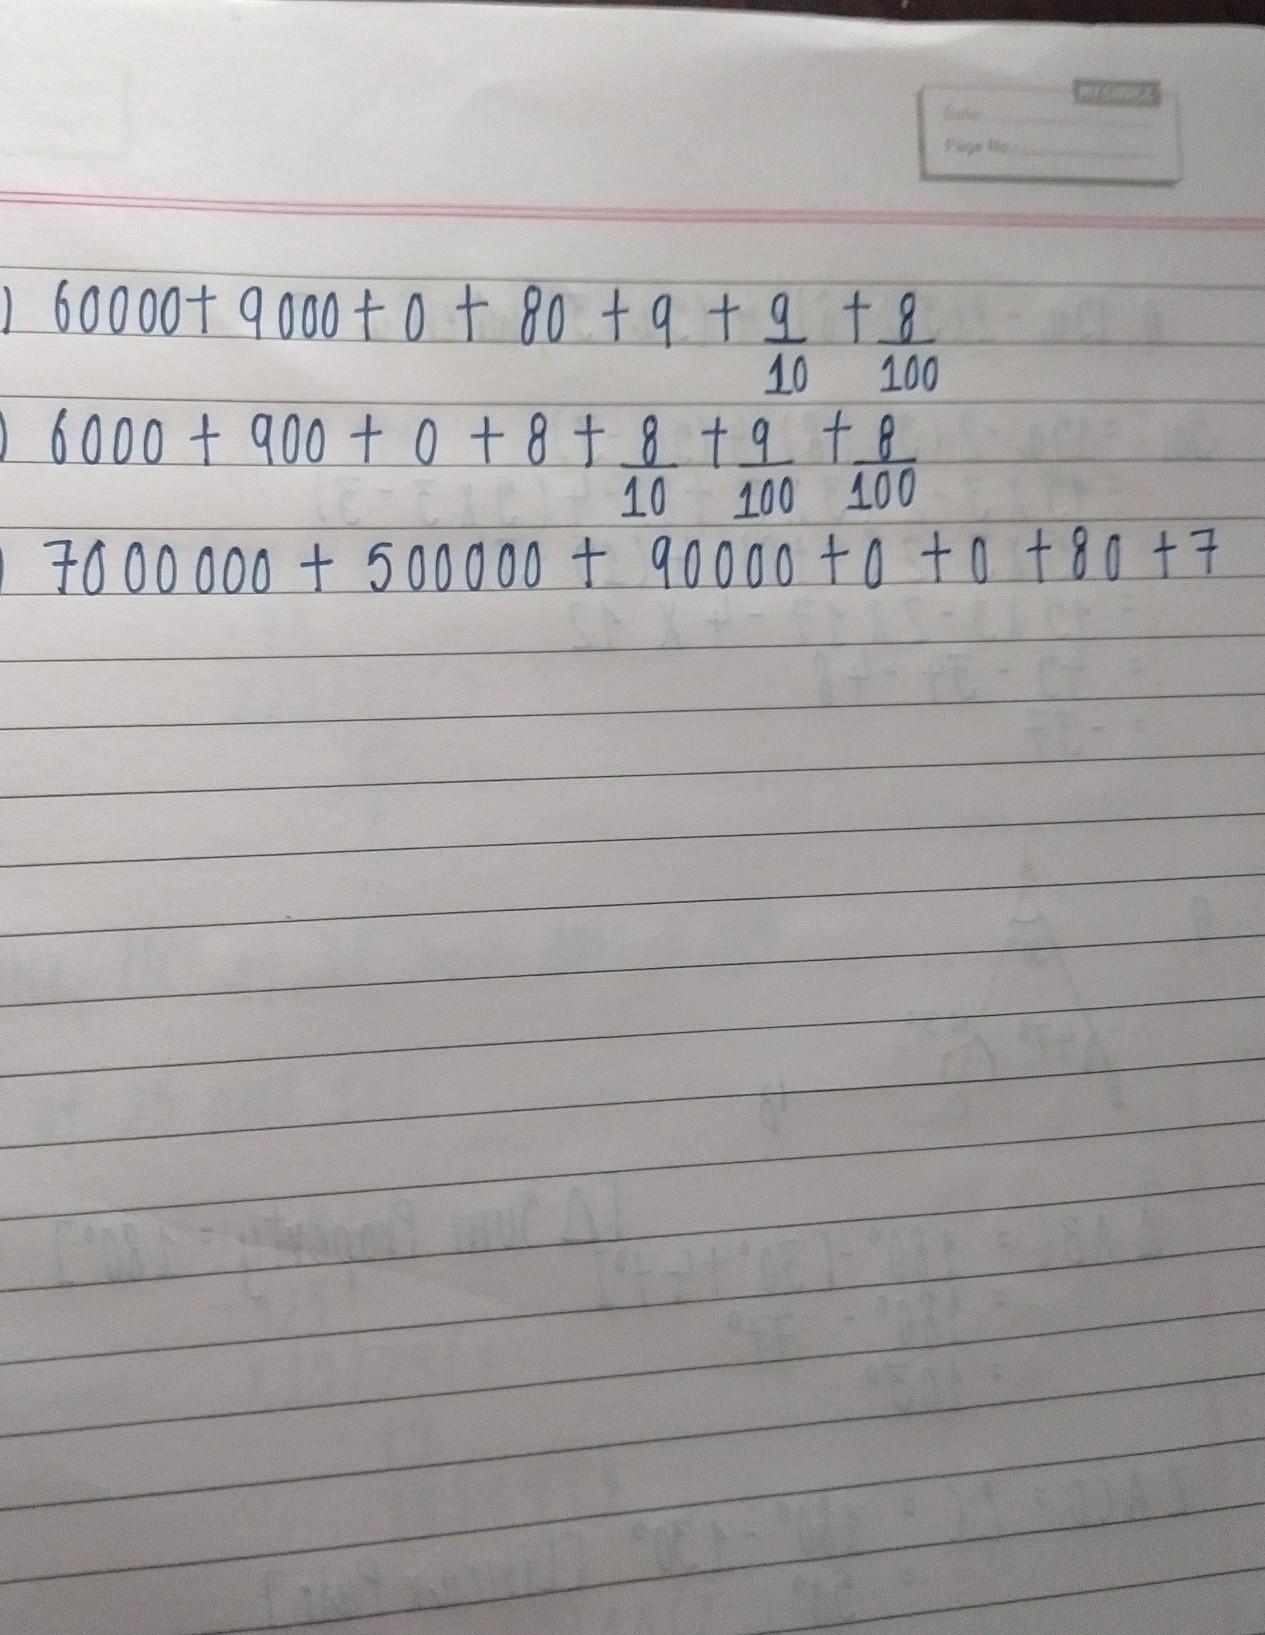 Date
Page No.
) 60000 + 9000 + 0 + 80 + 9 + 9/10 + 8/100
) 6000 + 900 + 0 + 8 + 8/10 + 9/100 + 8/100
) 7000000 + 500000 + 90000 + 0 + 0 + 80 + 7